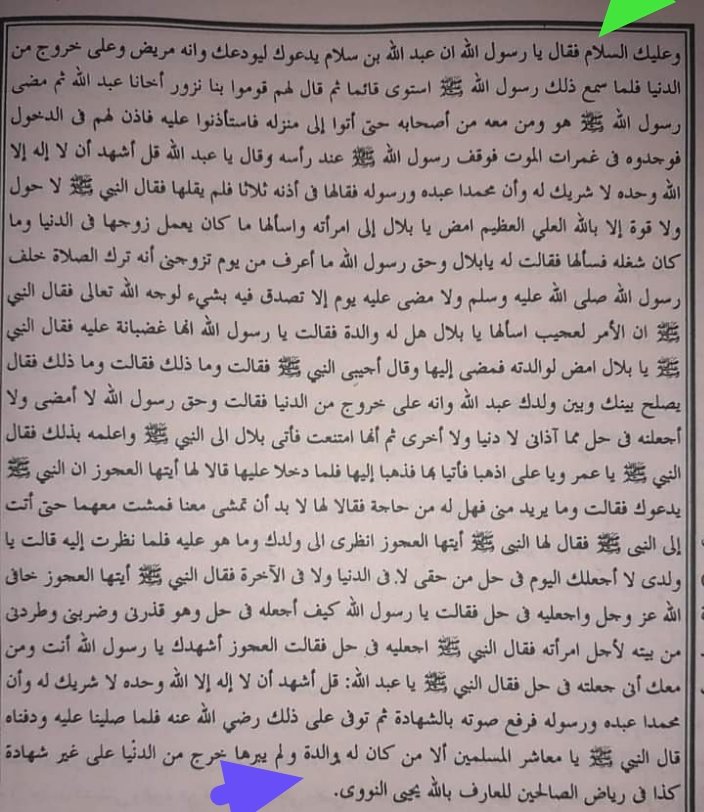 وعليك السلام فقال يا رسول الله ان عبد الله بن سلام يدعوك ليودعك وانه مريض وعلى خروج من
الدنيا فلما سمع ذلك رسول الله ﷺ استوى قائما ثم قال لهم قوموا بنا نزور أخانا عبد الله ثم مضى
رسول الله ﷺ هو ومن معه من أصحابه حتى أتوا إلى منزله فاستأذنوا عليه فاذن لهم فى الدخول
فوجدوه فى غمرات الموت فوقف رسول الله ﷺ عند رأسه وقال يا عبد الله قل أشهد أن لا إله إلا
الله وحده لا شريك له وأن محمدا عبده ورسوله فقالها فى أذنه ثلاثا فلم يقلها فقال النبي ﷺ لا حول
ولا قوة إلا بالله العلي العظيم امض يا بلال إلى امرأته واسألها ما كان يعمل زوجها فى الدنيا وما
كان شغله فسألها فقالت له يابلال وحق رسول الله ما أعرف من يوم تزوجنى أنه ترك الصلاة خلف
رسول الله صلى الله عليه وسلم ولا مضى عليه يوم إلا تصدق فيه بشيء لوجه الله تعالى فقال النبي
ﷺ ان الأمر لعجيب اسألها يا بلال هل له والدة فقالت يا رسول الله انها غضبانة عليه فقال النبي
ﷺ يا بلال امض لوالدته فمضى إليها وقال أجيبى النبي ﷺ فقالت وما ذلك فقالت وما ذلك فقال
يصلح بينك وبين ولدك عبد الله وانه على خروج من الدنيا فقالت وحق رسول الله لا أمضى ولا
أجعلنه فى حل مما آذانى لا دنيا ولا أخرى ثم أنها امتنعت فأتى بلال الى النبي ﷺ واعلمه بذلك فقال
النبي ﷺ يا عمر ويا على اذهبا فأتيا بها فذهبا إليها فلما دخلا عليها قالا لها أيتها العجوز ان النبي ﷺ
يدعوك فقالت وما يريد منى فهل له من حاجة فقالا لها لا بد أن تمشى معنا فمشت معهما حتى أتت
إلى النبى ﷺ فقال لها النبى ﷺ أيتها العجوز انظرى الى ولدك وما هو عليه فلما نظرت إليه قالت يا
ولدى لا أجعلك اليوم فى حل من حقى لا فى الدنيا ولا فى الآخرة فقال النبي ﷺ أيتها العجوز خافى
الله عز وجل واجعليه فى حل فقالت يا رسول الله كيف أجعله فى حل وهو قذرنى وضربنى وطردنى
من بيته لأجل امرأته فقال النبي ﷺ اجعليه فى حل فقالت العجوز أشهدك يا رسول الله أنت ومن
معك أنى جعلته فى حل فقال النبي ﷺ يا عبد الله: قل أشهد أن لا إله إلا الله وحده لا شريك له وأن
محمدا عبده ورسوله فرفع صوته بالشهادة ثم توفى على ذلك رضي الله عنه فلما صلينا عليه ودفناه
قال النبي ﷺ يا معاشر المسلمين ألا من كان له والدة ولم يبرها خرج من الدنيا على غير شهادة
كذا فى رياض الصالحين للعارف بالله يحيى النووى.